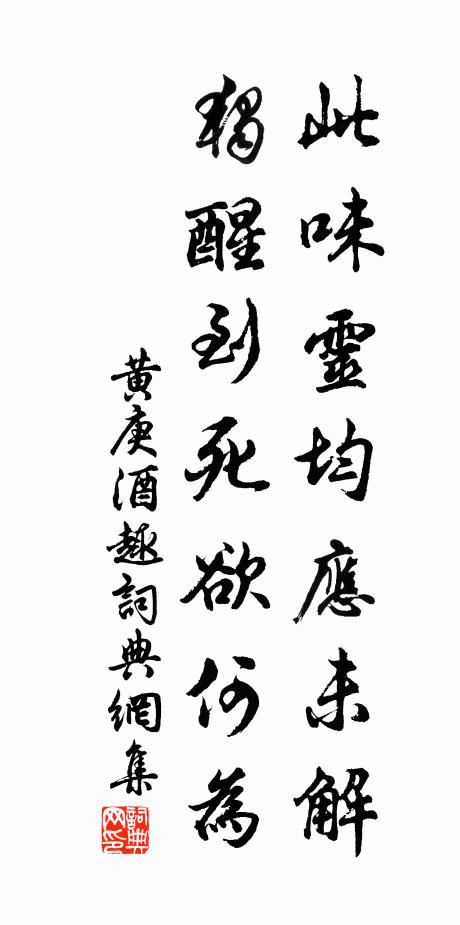 此味靈均應未解
獨醒到死欲何為
黃庚酒趣詞典網集
詞典網印